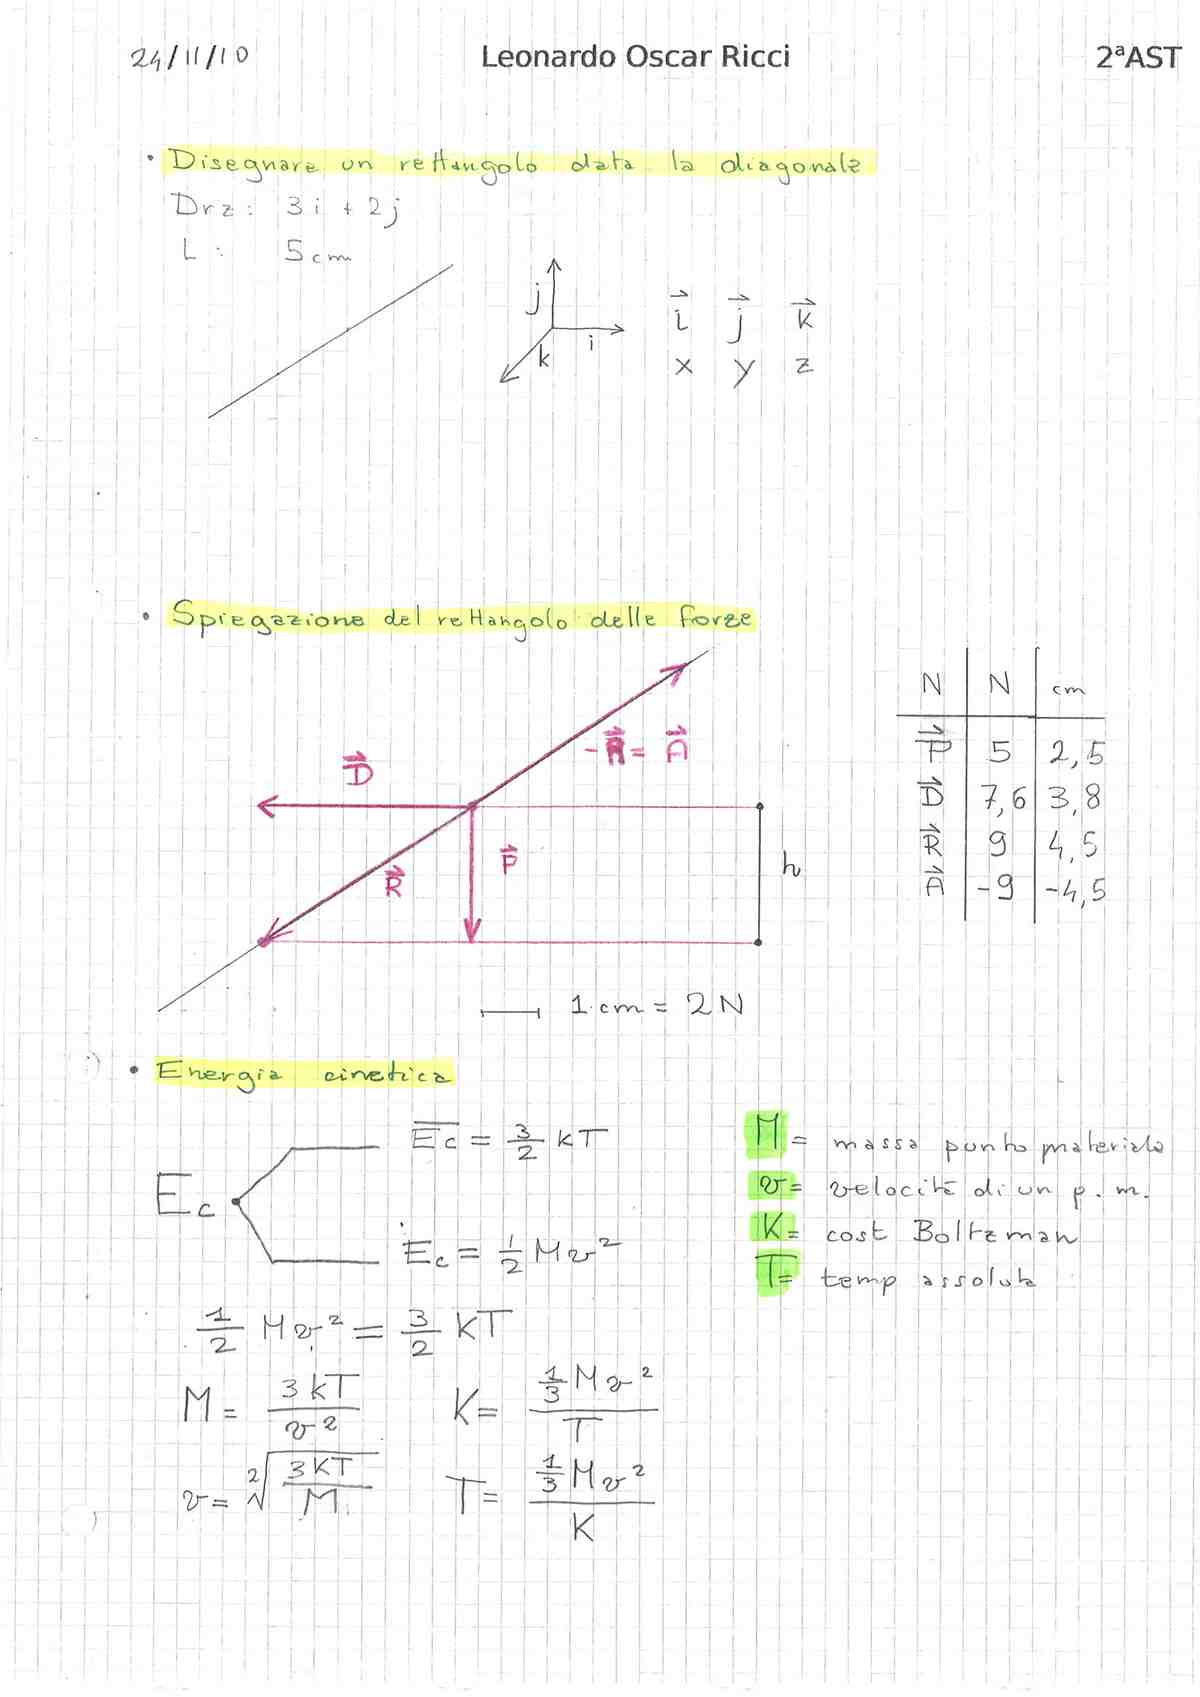 24/11/10 Leonardo Oscar Ricci 2ªAST
• Disegnare un rettangolo data la diagonale
Drz: 3i + 2j
L: 5cm
j
k
i
i⃗ j⃗ k⃗
x y z
• Spiegazione del rettangolo delle forze
D⃗
-R⃗ = A⃗
P⃗
R⃗
h
1 cm = 2N
N N cm
P⃗ 5 2,5
D⃗ 7,6 3,8
R⃗ 9 4,5
A⃗ -9 -4,5
• Energia cinetica
Ec
E̅c̅ = 3/2 kT
Ec = 1/2 Mv²
M = massa punto materiale
v = velocità di un p.m.
K = cost Boltzman
T = temp assoluta
1/2 Mv² = 3/2 KT
M = 3kT/v² K = 1/3 Mv²/T
v = ²√(3KT/M) T = 1/3 Mv²/K